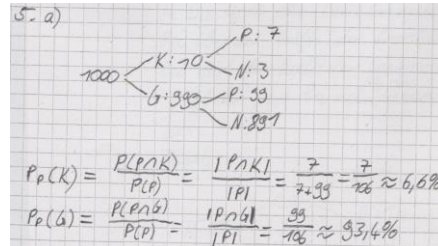 5. a)
P: 7
K: 10
N: 3
1000
G: 990
P: 99
N: 891
P_P(K) = P(P∩K)/P(P) = |P∩K|/|P| = 7/(7+99) = 7/106 ≈ 6,6%
P_P(G) = P(P∩G)/P(P) = |P∩G|/|P| = 99/106 ≈ 93,4%